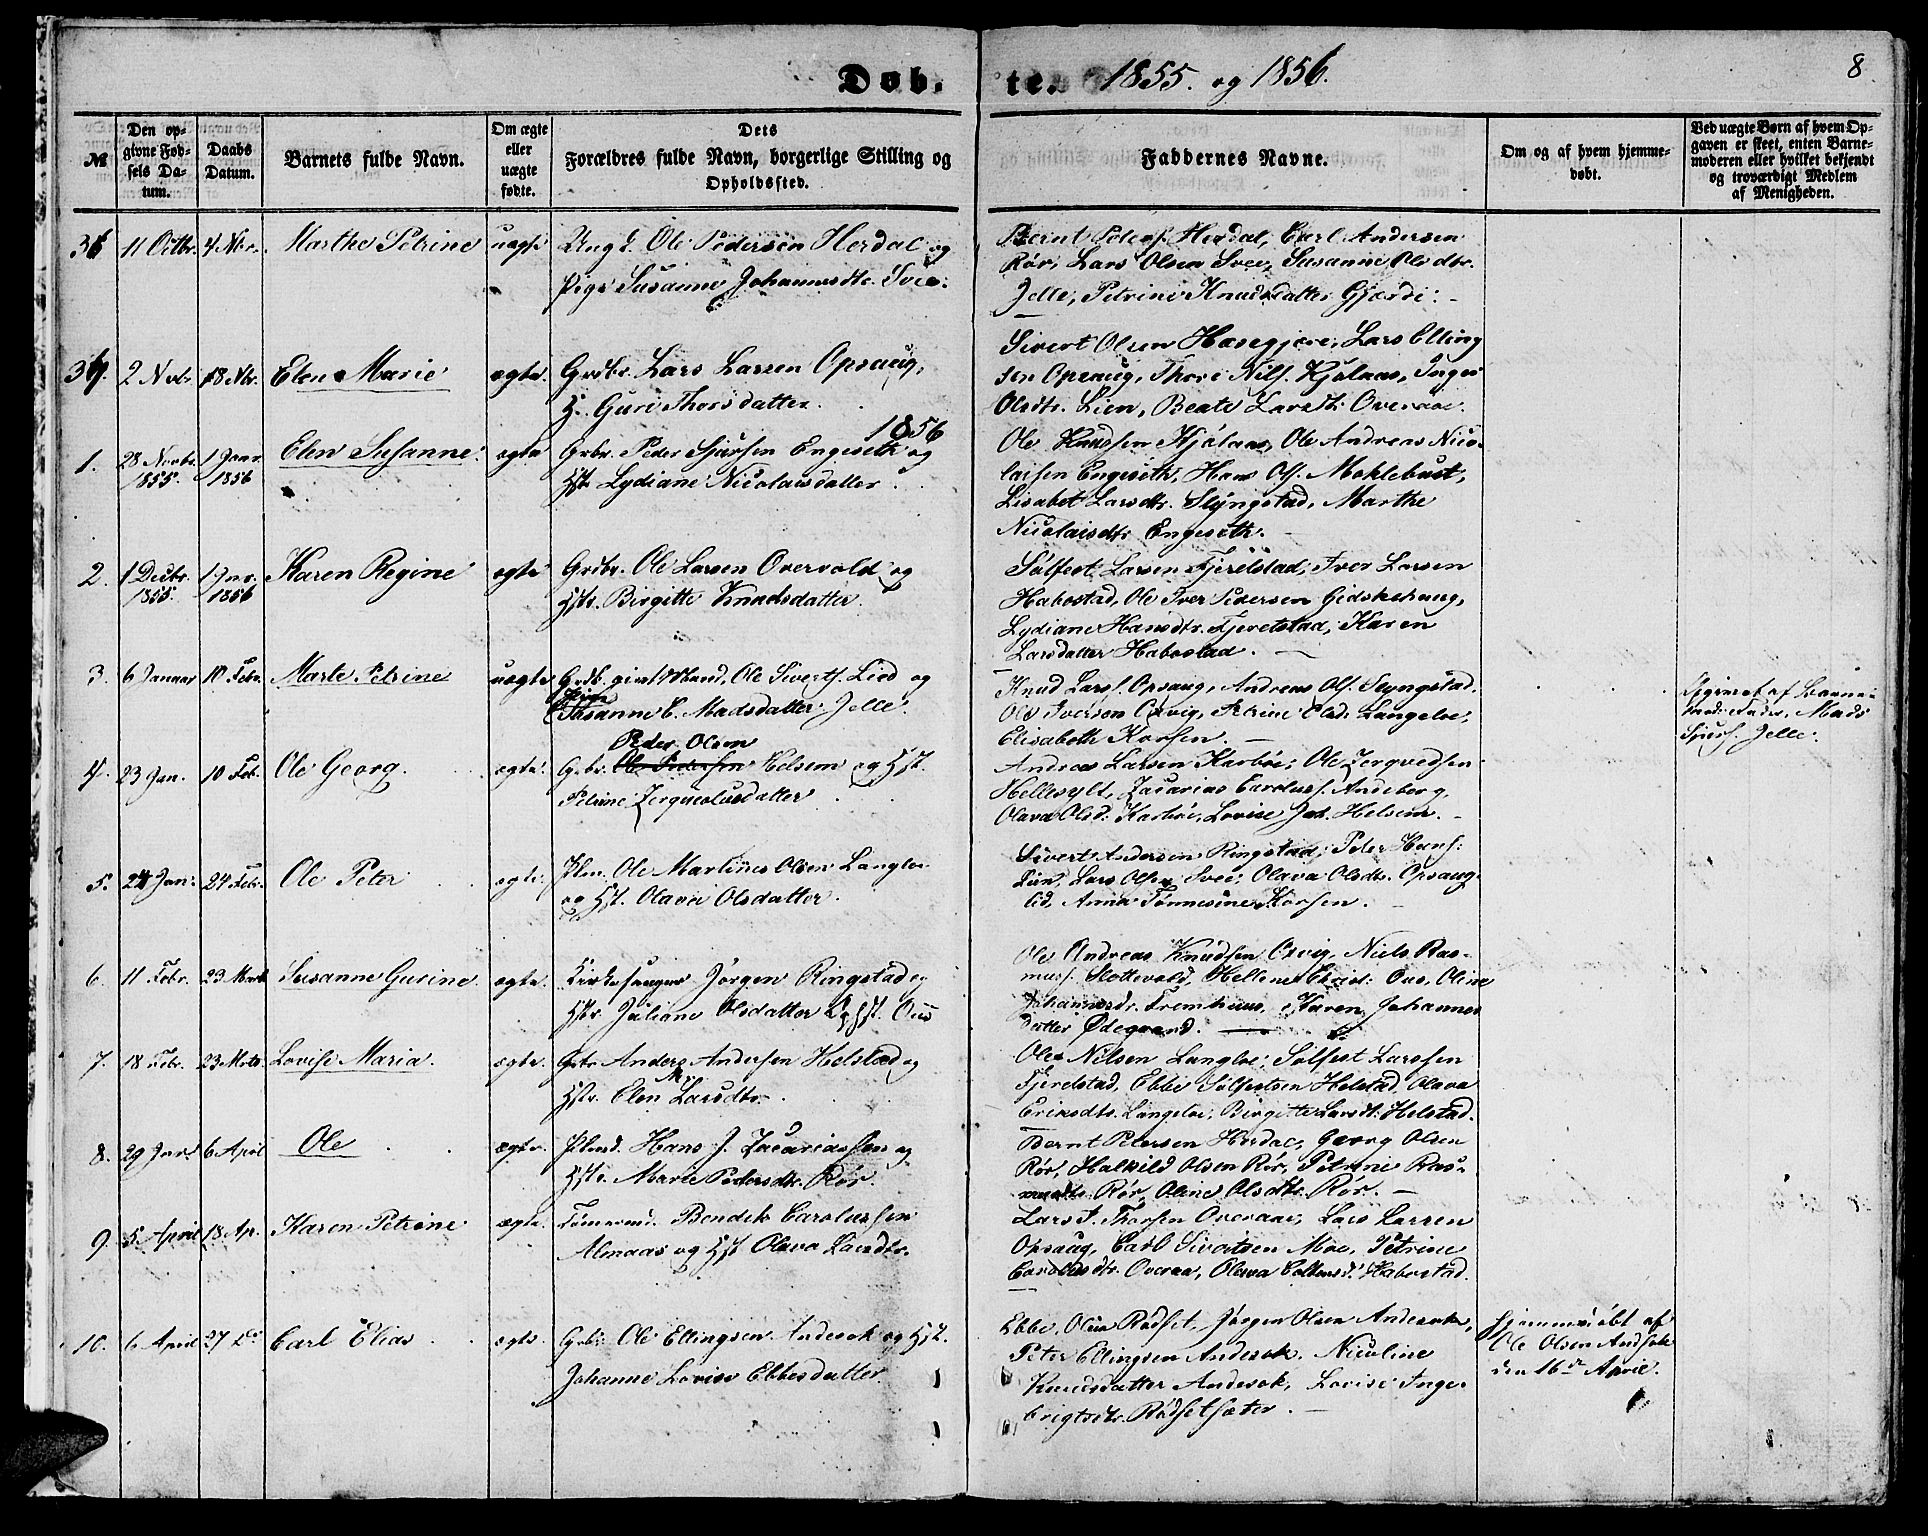 Døb. te. 1855. og 1856. 8
№ Den opgivne Fødsels Datum. Daabs Datum. Barnets fulde Navn. Om ægte eller uægte fødte. Dets Forældres fulde Navn, borgerlige Stilling og Opholdssted. Faddernes Navne. Om og af hvem hjemmedøbt. Ved uægte Børn af hvem Opgaven er skeet, enten Barnemoderen eller hvilket bekjendt og troværdigt Medlem af Menigheden.
36 11 Octbr. 4 Nbr. Marthe Petrine uægte Ungd. Ole Pedersen Herdal og
Pige Susanne Johannesdtr. Svee.
Bernt Peters. Herdal, Carl Andersen
Rør, Lars Olsen Svee, Susanne Olsdtr.
Jelle, Petrine Knudsdatter Gjærde. -
37. 2 Nvbr. 18 Nbr. Elen Marie ægte. Grdbr. Lars Larsen Opsaug,
H. Guri Thorsdatter.
Sivert Olsen Hasegjere, Lars Elling
sen Opsaug, Thore Nils. Kjølaas, Inger
Olsdtr. Lien, Beate Larsdtr. Overaae.
1856
1. 28 Novbr. 1855. 1 Janr 1856 Elen Susanne. ægte Grbr. Peder Sjursen Engeseth og
Hst. Lydiane Nicolaisdatter.
Ole Knudsen Kjølaas, Ole Andreas Nico-
laisen Engeseth, Hans Ols. Meklebust,
Lisabet Larsdtr. Slyngstad, Marthe
Nicolaisdtr. Engeseth. -
2. 1 Decbr. 1855. 1 Jnr. 1856 Karen Regine ægte Grdbr. Ole Larsen Overvold og
Hst. Birgitte Knudsdatter.
Sølfest Larsen Fjerelstad, Iver Larsen
Habostad, Ole Iver Pedersen Gidskehaug,
Lydiane Hansdtr. Fjeretstad, Karen
Larsdatter Habostad. -
3. 6 Januar 10 Febr. Marte Petrine uægte Grdb. givt Mand, Ole Siverts. Lied og
Pige Susanne C. Madsdatter Jelle.
Knud Lars. Opsaug, Andreas Ols. Slyngstad.
Ole Iversen Orvig, Petrine Olsd. Langeloe,
Elisabeth Korsen. -
Opgivet af Barne-
mod. Fader, Mads
Sjurs. Jelle.
4. 23 Jan. 10 Feb. Ole Georg. ægte. Peder Olsen
Grbr. Ole Pedersen Helsem og Hst.
Petrine Zerqveolusdatter
Andreas Larsen Karbøe, Ole Zerqvedsen
Hellesylt, Zacarias Carolus. Andeberg,
Olava Olsd. Karbøe, Lovise Joh. Helsem. -
5. 24 Jan. 24 Febr. Ole Peter ægte. Plm. Ole Martinus Olsen Langloe
og Hst. Olava Olsdatter.
Sivert Andersen Ringstad, Peter Hans.
Lien, Lars Olsen Svee, Olava Olsdtr. Opsaug-
lid, Anna Tønnesine Korsen. -
6. 11 Febr. 23 Marts Susanne Gurine. ægte. Kirkesanger Jørgen Ringstad og
Hst. Juliane Olsdatter Ophst. Ous
Ole Andreas Knudsen Orvig, Niels Ras-
muss. Slottevold, Helline Christ. Ous, Oline
Johannesdr. Fremhuus, Karen Johannes
datter Ødegaard. -
7. 18 Febr. 23 Mrts. Lovise Maria. ægte. Gbr. Anders Andersen Helstad og
Hst. Elen M. Larsdtr.
Ole Nilsen Langloe, Sølfest Larssen
Fjerelstad, Ebbe Sølfestsen Helstad, Olava
Eriksdtr. Langeloe, Birgitte Larsdt. Helstad.
8. 29 Jnr. 6 April Ole ægte. Plmd. Hans J. Zacariassen og
Hst. Marte Pedersdtr. Rør.
Bernt Petersen Herdal, Georg Olsen
Rør, Halkild Olsen Rør, Petrine Ras-
musdtr. Rør, Oline Olsdtr. Rør. -
9. 5 April 18 Ap. Karen Petrine ægte. Tømmermd. Bendik Carolussen
Almaas og Hst Olava Larsdtr.
Lars T. Thorsen Overaae, Lars Larsen
Opsaug, Carl Sivertsen Moe, Petrine
Carolusdtr. Overaa, Olava Coltensd. Habostad.
10. 6 April 27 do Carl Elias ægte. Grbr. Ole Ellingsen Andesok og Hst.
Johanne Lovise Ebbesdatter.
Ebbe Olsen Rødset, Jørgen Olsen Andesok,
Peter Ellingsen Andesok, Nicoline
Knudsdatter Andesok, Lovise Inge-
brigtsdtr. Rødsetsæter. -
Hjemmedøbt af
Ole Olsen Andsok
den 16de April.